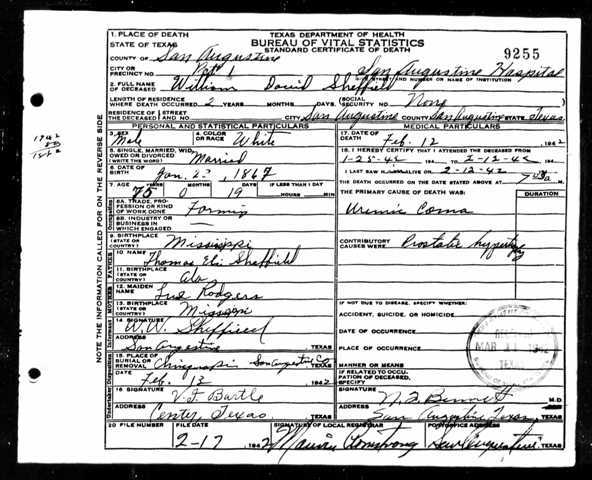 TEXAS DEPARTMENT OF HEALTH
BUREAU OF VITAL STATISTICS
STANDARD CERTIFICATE OF DEATH
9255
1. PLACE OF DEATH
STATE OF TEXAS
COUNTY OF San Augustine
CITY OR PRECINCT NO. 1
San Augustine Hospital
STREET AND NUMBER OR NAME OF INSTITUTION
2. FULL NAME OF DECEASED William David Sheffield
LENGTH OF RESIDENCE WHERE DEATH OCCURRED 2 YEARS MONTHS DAYS
SOCIAL SECURITY NO. None
RESIDENCE OF THE DECEASED STREET AND NO. CITY San Augustine COUNTY San Augustine STATE Texas
PERSONAL AND STATISTICAL PARTICULARS
3. SEX Male
4. COLOR OR RACE White
5. SINGLE, MARRIED, WIDOWED OR DIVORCED (WRITE THE WORD) Married
6. DATE OF BIRTH Jan. 1867
7. AGE 75 YEARS 0 MONTHS 19 DAYS IF LESS THAN 1 DAY HOURS MIN
8A. TRADE, PROFESSION OR KIND OF WORK DONE
8B. INDUSTRY OR BUSINESS IN WHICH ENGAGED
9. BIRTHPLACE (STATE OR COUNTRY) Mississippi
10. NAME Thomas Eli Sheffield
11. BIRTHPLACE (STATE OR COUNTRY) Ala
12. MAIDEN NAME Rodgers
13. BIRTHPLACE (STATE OR COUNTRY)
14. SIGNATURE W.W. Sheffield
ADDRESS San Augustine TEXAS
15. PLACE OF BURIAL OR REMOVAL San Augustine Co TEXAS
DATE Feb. 13 1942
16. SIGNATURE V. F. Bartle
ADDRESS Center, Texas TEXAS
20. FILE NUMBER
FILE DATE 2-17 1942
SIGNATURE OF LOCAL REGISTRAR Armstrong
POSTOFFICE ADDRESS San Augustine, TEXAS
MEDICAL PARTICULARS
17. DATE OF DEATH Feb. 12 1942
18. I HERECY CERTIFY THAT I ATTENDED THE DECEASED FROM
1-25-42 194 TO 2-12-42 194
I LAST SAW H ALIVE ON 2-12-42 194
THE DEATH OCCURRED ON THE DATE STATED ABOVE AT
THE PRIMARY CAUSE OF DEATH WAS: DURATION
Uremic Coma
CONTRIBUTORY CAUSES WERE:
IF NOT DUE TO DISEASE, SPECIFY WHETHER:
ACCIDENT, SUICIDE, OR HOMICIDE
DATE OF OCCURRENCE
PLACE OF OCCURRENCE
MANNER OR MEANS
IF RELATED TO OCCUPATION OF DECEASED, SPECIFY
SIGNATURE Bennett M.D
ADDRESS San Augustine Texas, TEXAS
NOTE THE INFORMATION CALLED FOR ON THE REVERSE SIDE
MAR 11 1942
TEXAS